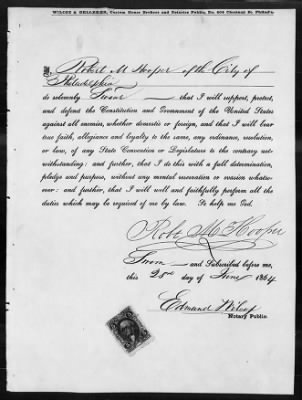 WILCOX & GALLAGHER, Custom House Brokers and Notaries Public, No. 500 Chestnut St. Philad'a.
I, Robert M Hooper of the City of
Philadelphia
do solemnly Swear that I will support, protect,
and defend the Constitution and Government of the United States
against all enemies, whether domestic or foreign, and that I will bear
true faith, allegiance and loyalty to the same, any ordinance, resolution,
or law, of any State Convention or Legislature to the contrary not-
withstanding: and further, that I do this with a full determination,
pledge and purpose, without any mental reservation or evasion whatso-
ever: and further, that I will well and faithfully perform all the
duties which may be required of me by law. So help me God.
Robt M Hooper
Sworn and Subscribed before me,
this 23rd day of June 1864
Edmund Wilcox
Notary Public